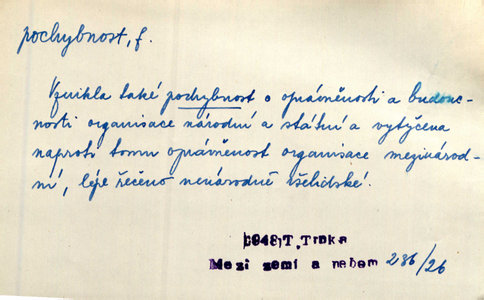 pochybnost, f.
Vznikla také pochybnost o oprávněnosti a budouc-
nosti organisace národní a státní a vytýčena
naproti tomu oprávněnost organisace mezinárod-
ní, lépe řečeno nenárodně všelidské.
1948 T. Trnka
Mezi zemí a nebem 236/26